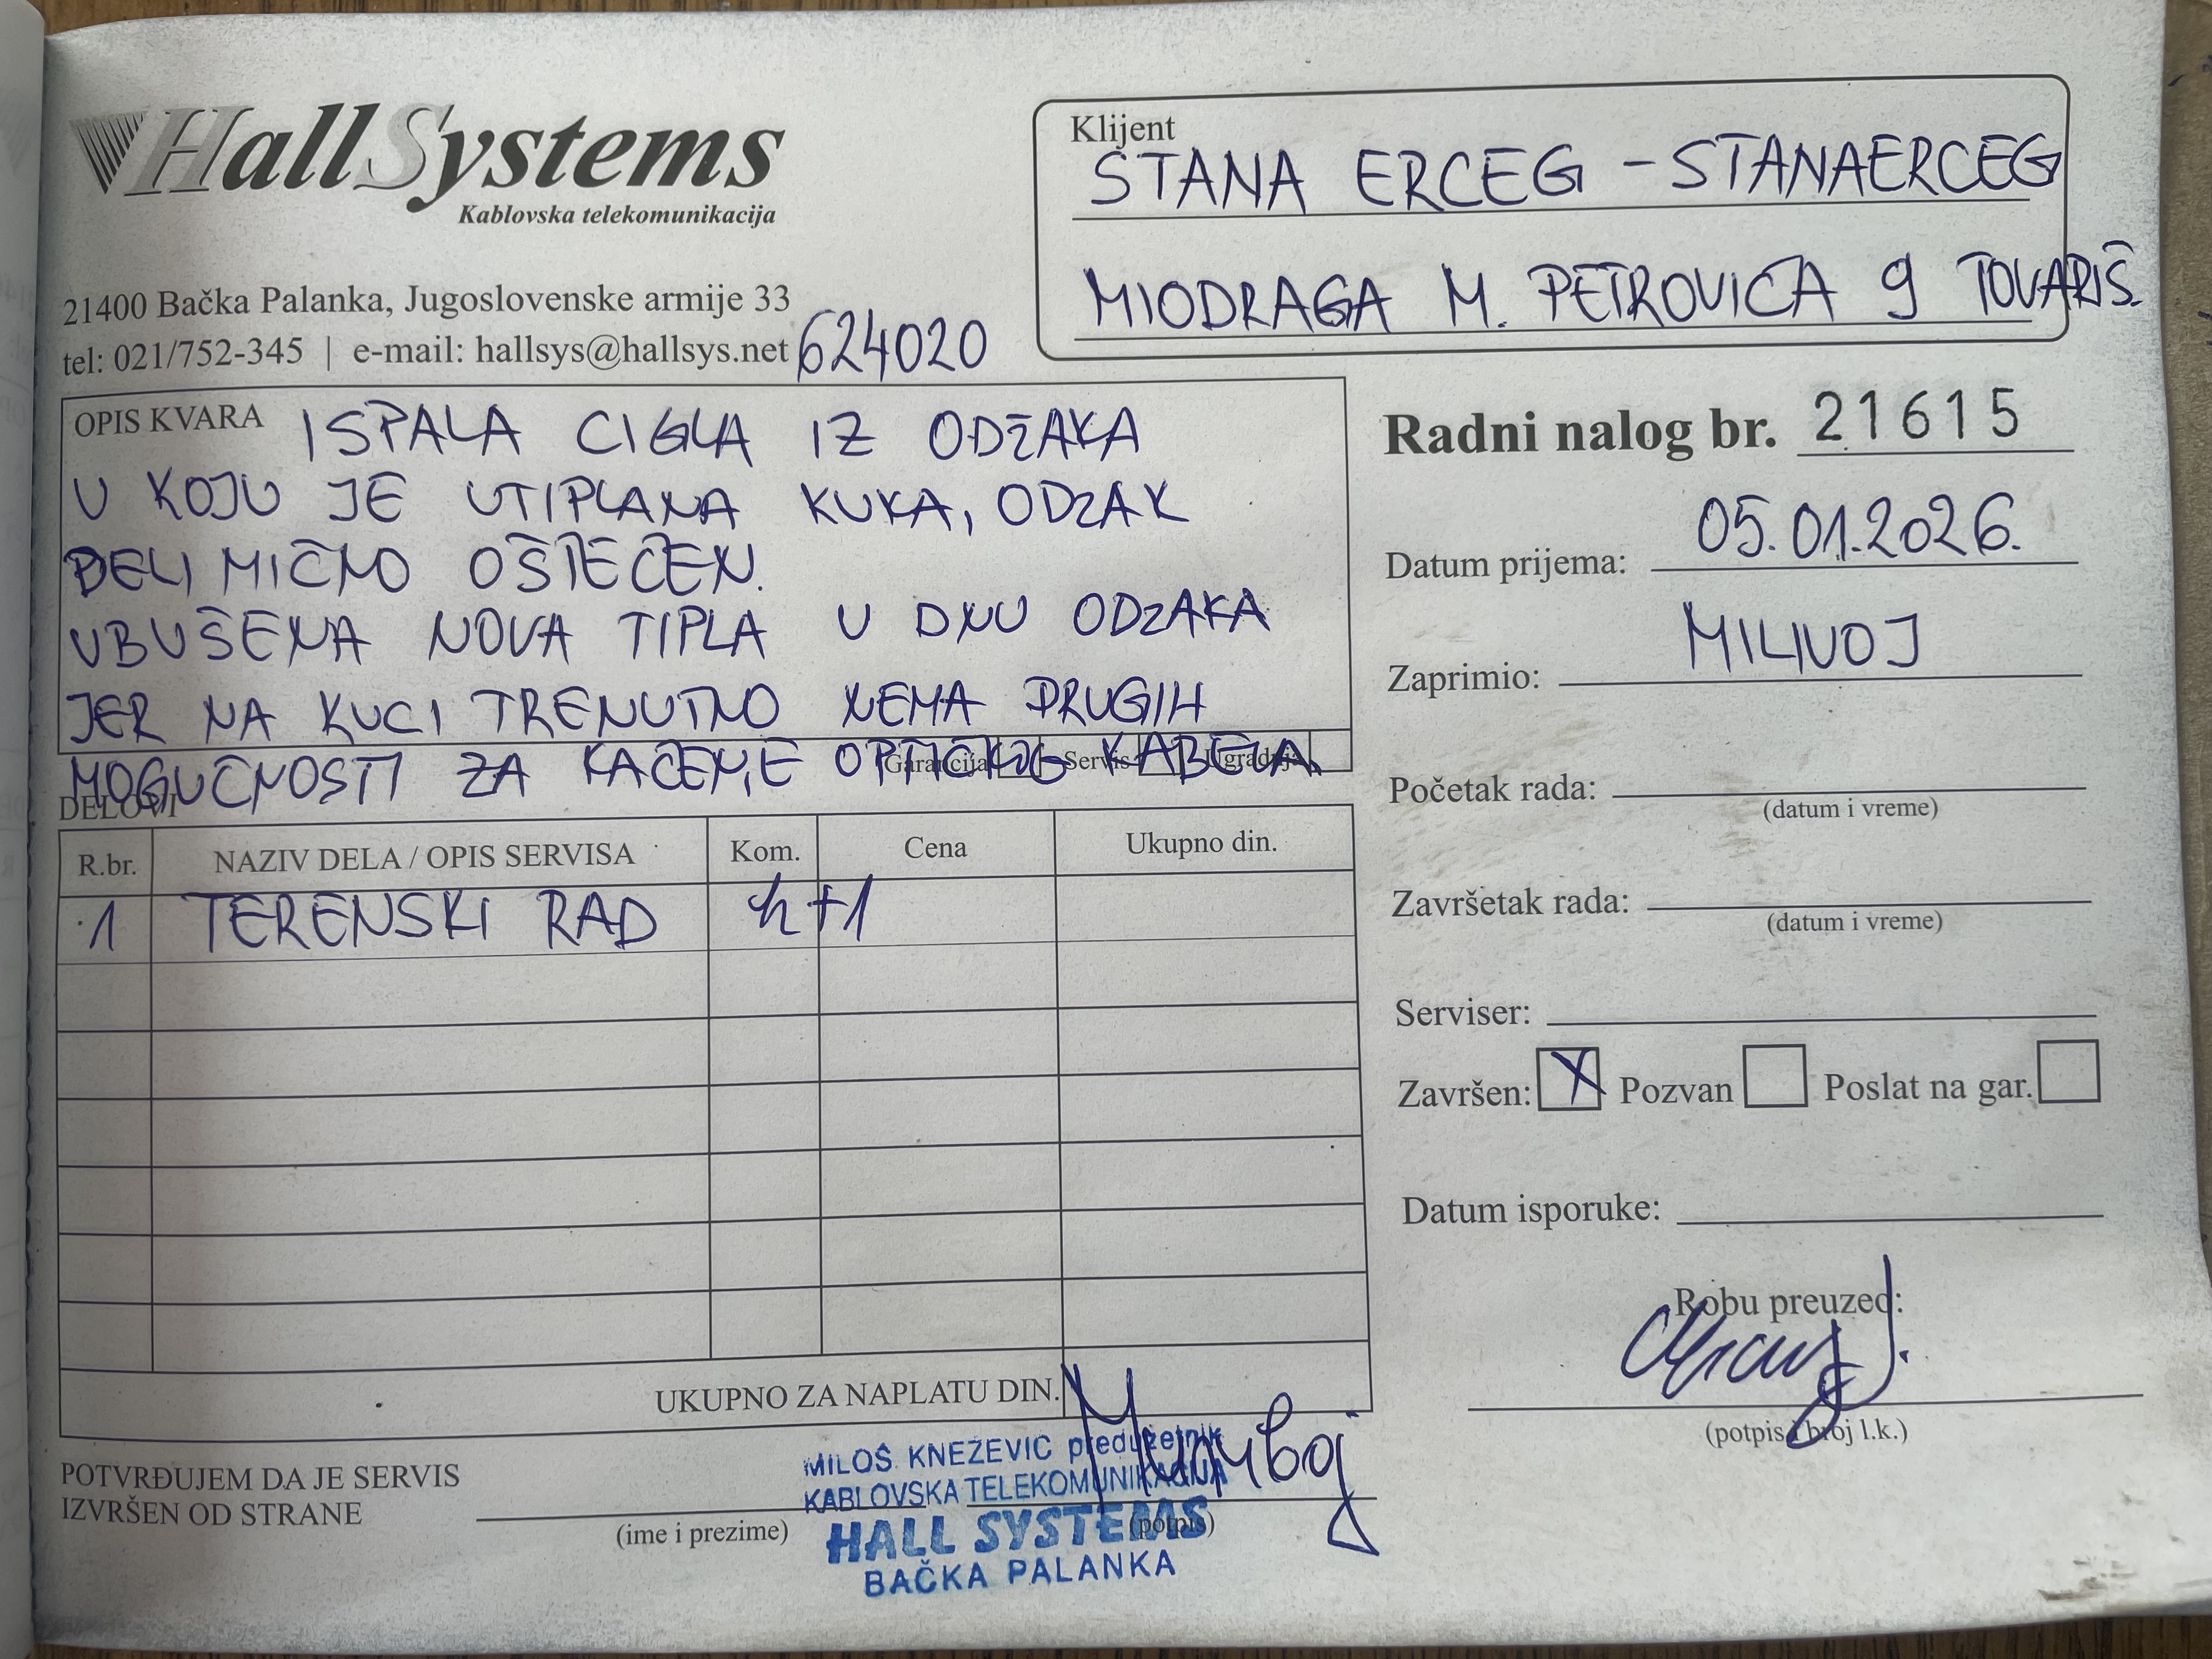 HallSystems
Kablovska telekomunikacija
21400 Bačka Palanka, Jugoslovenske armije 33
tel: 021/752-345 | e-mail: hallsys@hallsys.net
624020
Klijent
STANA ERCEG - STANAERCEG
MIODRAGA M. PETROVIĆA 9 TOVARIŠ.
OPIS KVARA
ISPALA CIGLA IZ ODZAKA
U KOJU JE UTIPLANA KUKA, ODZAK
DELIMIČNO OŠTEĆEN.
UBUŠENA NOVA TIPLA U DNU ODZAKA
JER NA KUCI TRENUTNO NEMA DRUGIH
MOGUĆNOSTI ZA KAČENJE OPTIČKOG KABELA.
Garancija Servis Ugradnja
DELOVI
R.br. NAZIV DELA / OPIS SERVISA Kom. Cena Ukupno din.
1 TERENSKI RAD h+1
UKUPNO ZA NAPLATU DIN.
Radni nalog br. 21615
Datum prijema: 05.01.2026.
Zaprimio: MILIVOJ
Početak rada:
(datum i vreme)
Završetak rada:
(datum i vreme)
Serviser:
Završen: X Pozvan Poslat na gar.
Datum isporuke:
Robu preuzeo:
(potpis i broj l.k.)
POTVRĐUJEM DA JE SERVIS
IZVRŠEN OD STRANE
(ime i prezime)
(potpis)
MILOŠ KNEŽEVIĆ preduzetnik
KABLOVSKA TELEKOMUNIKACIJA
HALL SYSTEMS
BAČKA PALANKA